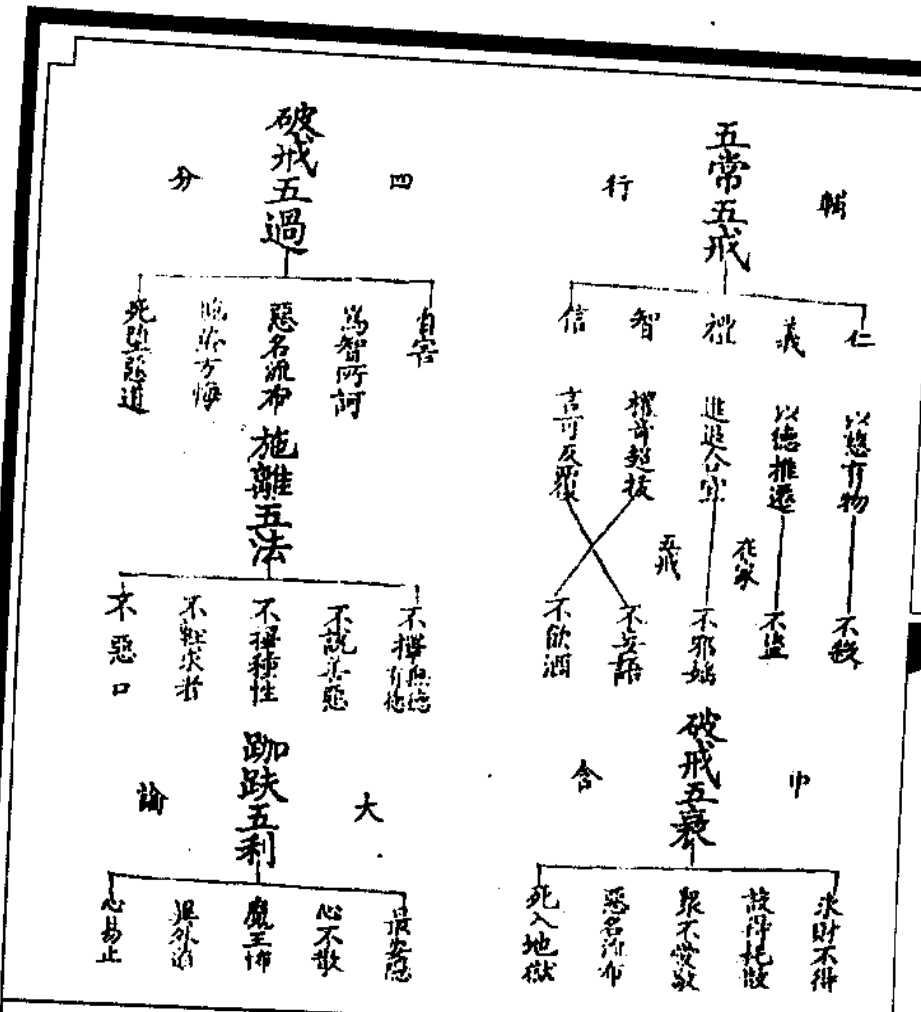 五常五戒
輔行
仁
義
禮
智
信
以慈育物
以德推遷
進退合宜
權奇超拔
言可反覆
在家五戒
不殺
不盜
不邪婬
不妄語
不飲酒
破戒五衰
中含
求財不得
設得耗散
眾不愛敬
惡名流布
死入地獄
破戒五過
四分
自害
為智所訶
惡名流布
臨終方悔
死墮惡道
施離五法
不擇有德無德
不說善惡
不擇種性
不輕求者
不惡口
跏趺五利
大論
最安隱
心不散
魔王怖
異外道
心易止